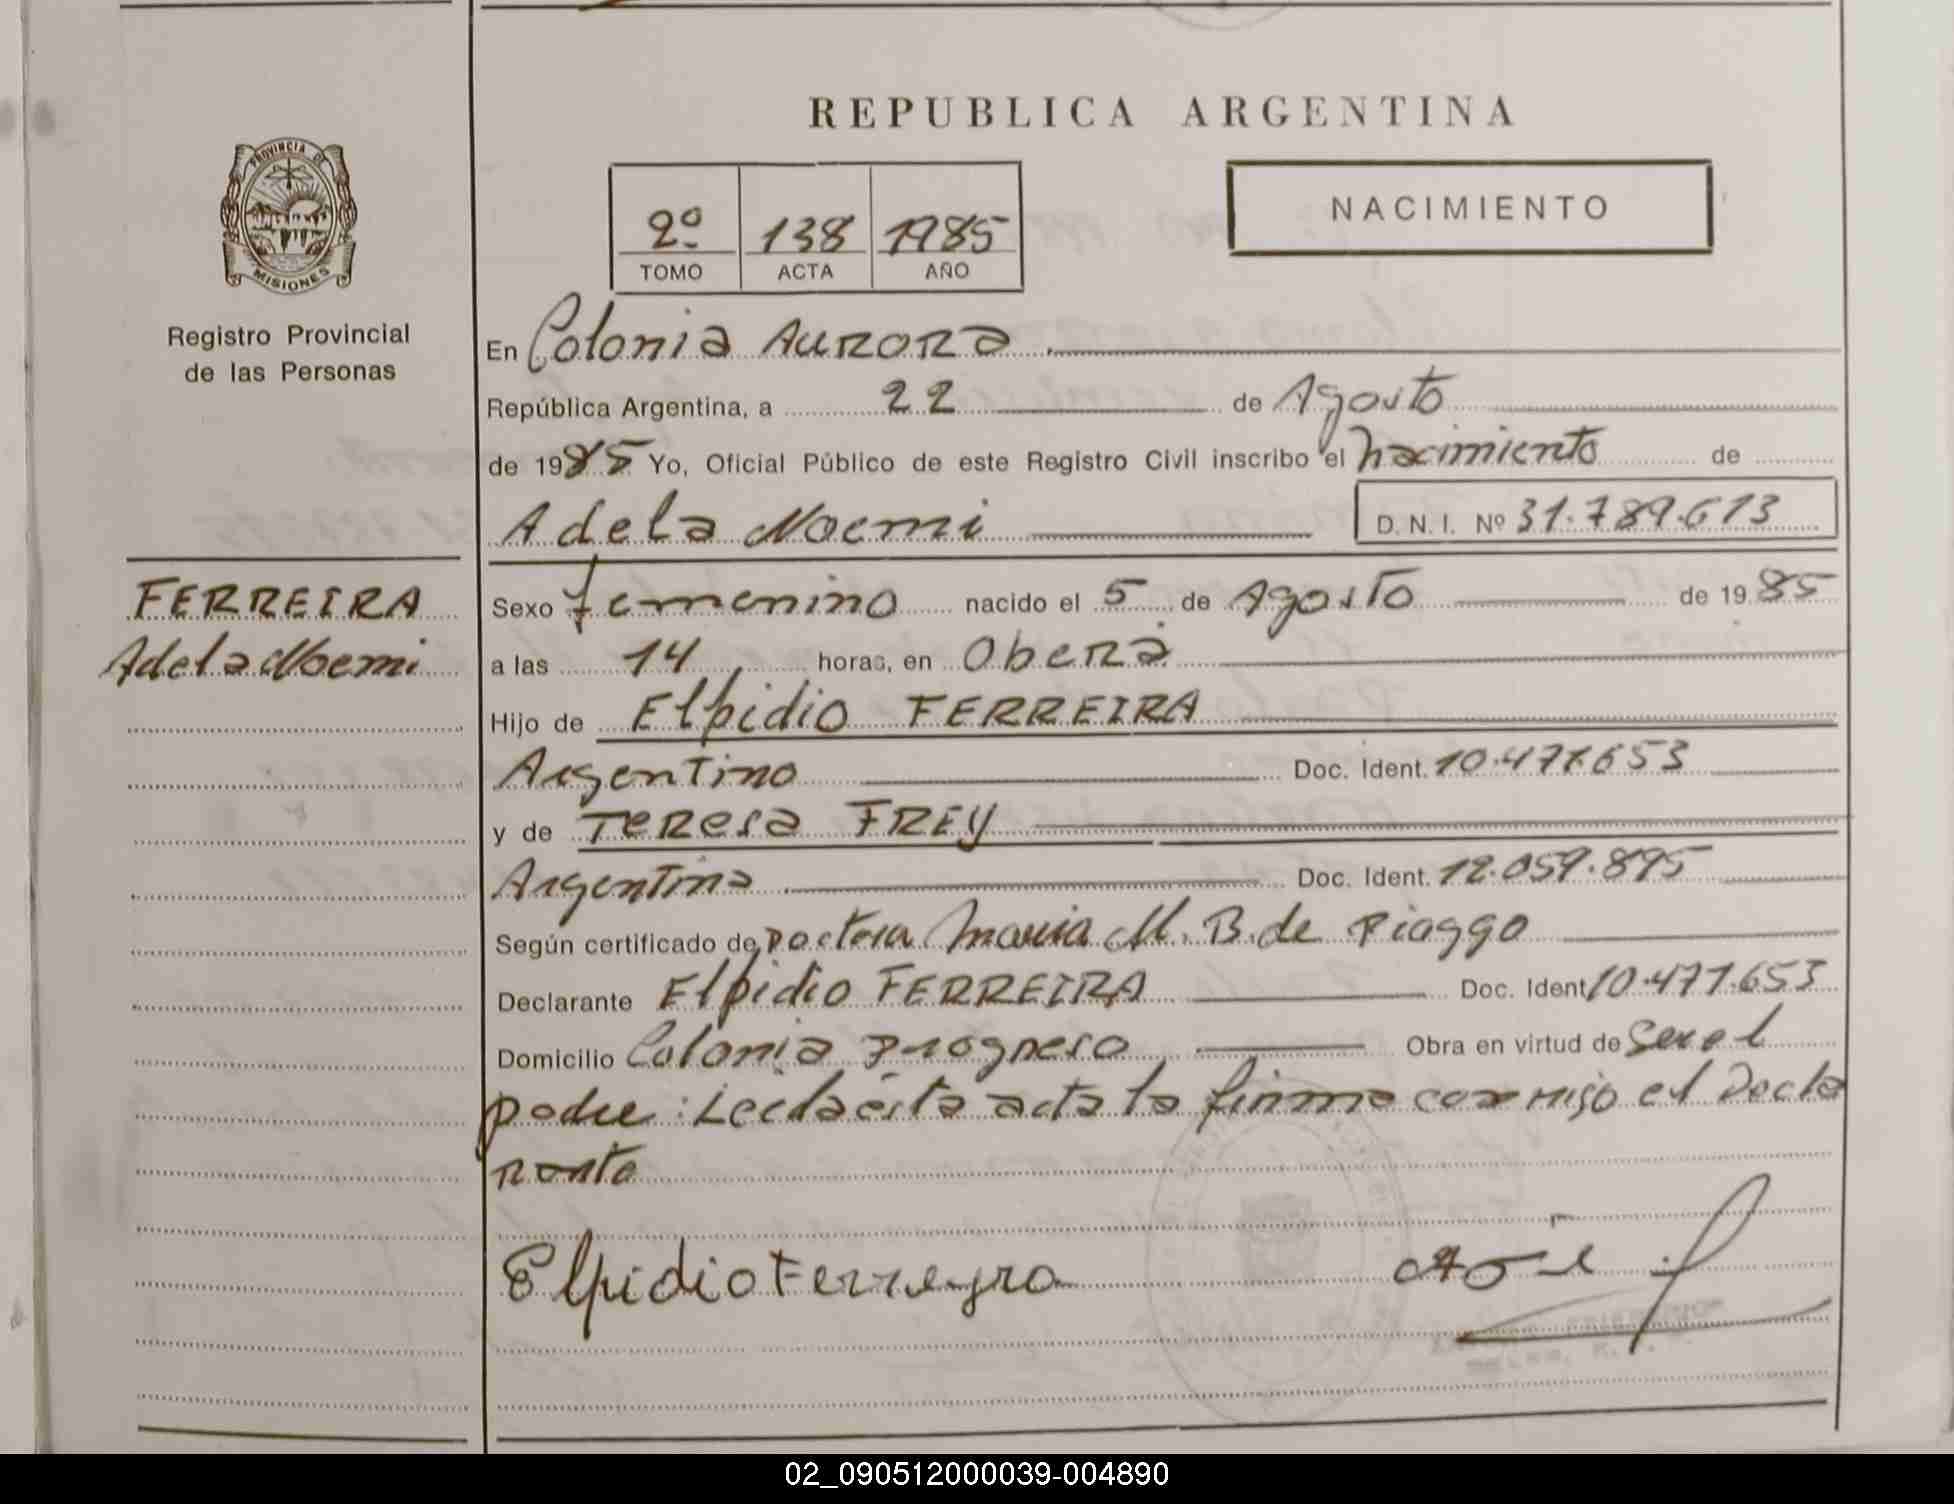 REPUBLICA ARGENTINA
PROVINCIA DE
MISIONES
Registro Provincial
de las Personas
2º 138 1985
TOMO ACTA AÑO
NACIMIENTO
En Colonia AURORA
República Argentina, a 22 de Agosto
de 1985 Yo, Oficial Público de este Registro Civil inscribo el nacimiento de
Adela Noemi D.N.I. Nº 31.789.613
FERREIRA
Adela Noemi
Sexo femenino nacido el 5 de Agosto de 1985
a las 14 horas, en Oberá
Hijo de Elpidio FERREIRA
Argentino Doc. Ident. 10.477.653
y de Teresa FREY
Argentina Doc. Ident. 12.059.895
Según certificado de Doctora Maria M. B. de Piaggo
Declarante Elpidio FERREIRA Doc. Ident 10.477.653
Domicilio Colonia Progreso Obra en virtud de Ser el
padre: Leida ésta acta la firma conmigo el Decla
rante
Elpidio Ferreyra
02_090512000039-004890